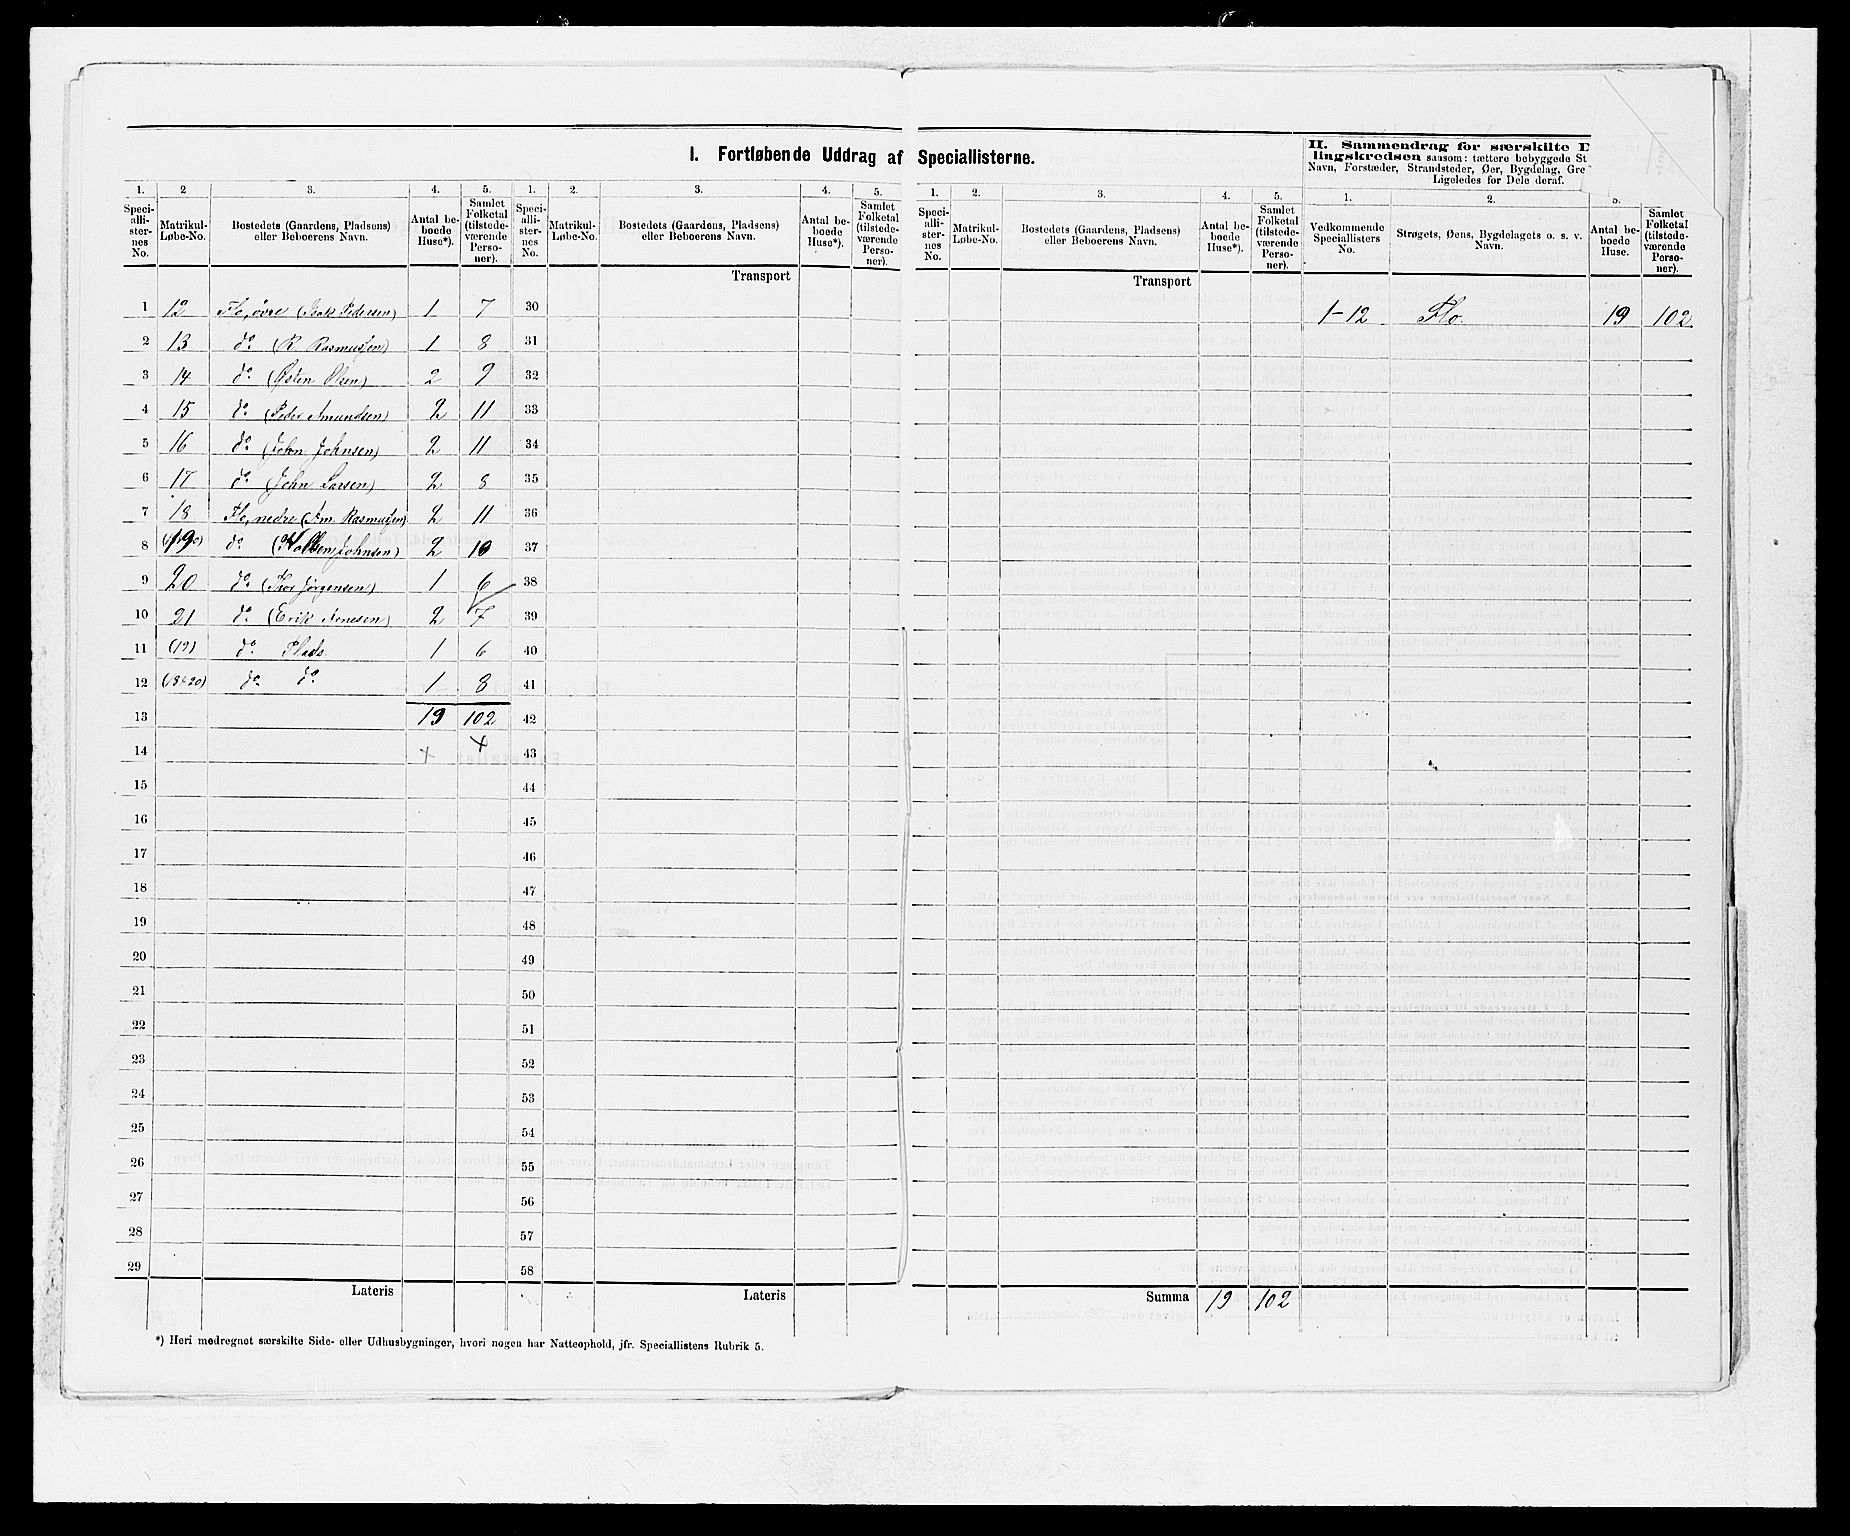 I. Fortløbende Uddrag af Speciallisterne.
II. Sammendrag for særskilte D
lingskredsen saasom: tættere bebyggede St
Navn, Forstæder, Strandsteder, Øer, Bygdelag, Gre
Ligeledes for Dele deraf.
1. 2 3. 4. 5. 1. 2. 3. 4. 5. 1. 2. 3. 4. 5. 1. 2. 3.
Speciallisternes No. Matrikul-Løbe-No. Bostedets (Gaardens, Pladsens) eller Beboerens Navn. Antal beboede Huse*). Samlet Folketal (tilstedeværende Personer).
Speciallisternes No. Matrikul-Løbe-No. Bostedets (Gaardens, Pladsens) eller Beboerens Navn. Antal beboede Huse*). Samlet Folketal (tilstedeværende Personer).
Speciallisternes No. Matrikul-Løbe-No. Bostedets (Gaardens, Pladsens) eller Beboerens Navn. Antal beboede Huse*). Samlet Folketal (tilstedeværende Personer).
Vedkommende Speciallisters No. Strøgets, Øens, Bygdelagets o. s. v. Navn. Antal beboede Huse. Samlet Folketal (tilstedeværende Personer).
Transport Transport
1 12 Flo, øvre (Isak Pedersen) 1 7 30 1-12 Flo. 19 102.
2 13 do (R Rasmussen) 1 8 31
3 14 do (Østen Olsen) 2 9 32
4 15 do (Peder Amundsen) 2 11 33
5 16 do (John Johnsen) 2 11 34
6 17 do (John Larsen) 2 8 35
7 18 Flo, nedre (Am. Rasmussen) 2 11 36
8 19 do Johnsen) 2 10 37
9 20 do (Thor Jørgensen) 1 6 38
10 21 do (Erik Arnesen) 2 7 39
11 (19) do Plads 1 6 40
12 (18 & 20) do do 1 8 41
13 19 102 42
14 + + 43
15 44
16 45
17 46
18 47
19 48
20 49
21 50
22 51
23 52
24 53
25 54
26 55
27 56
28 57
29 58
Lateris Lateris Summa 19 102
*) Heri medregnet særskilte Side- eller Udhusbygninger, hvori nogen har Natteophold, jfr. Speciallistens Rubrik 5.